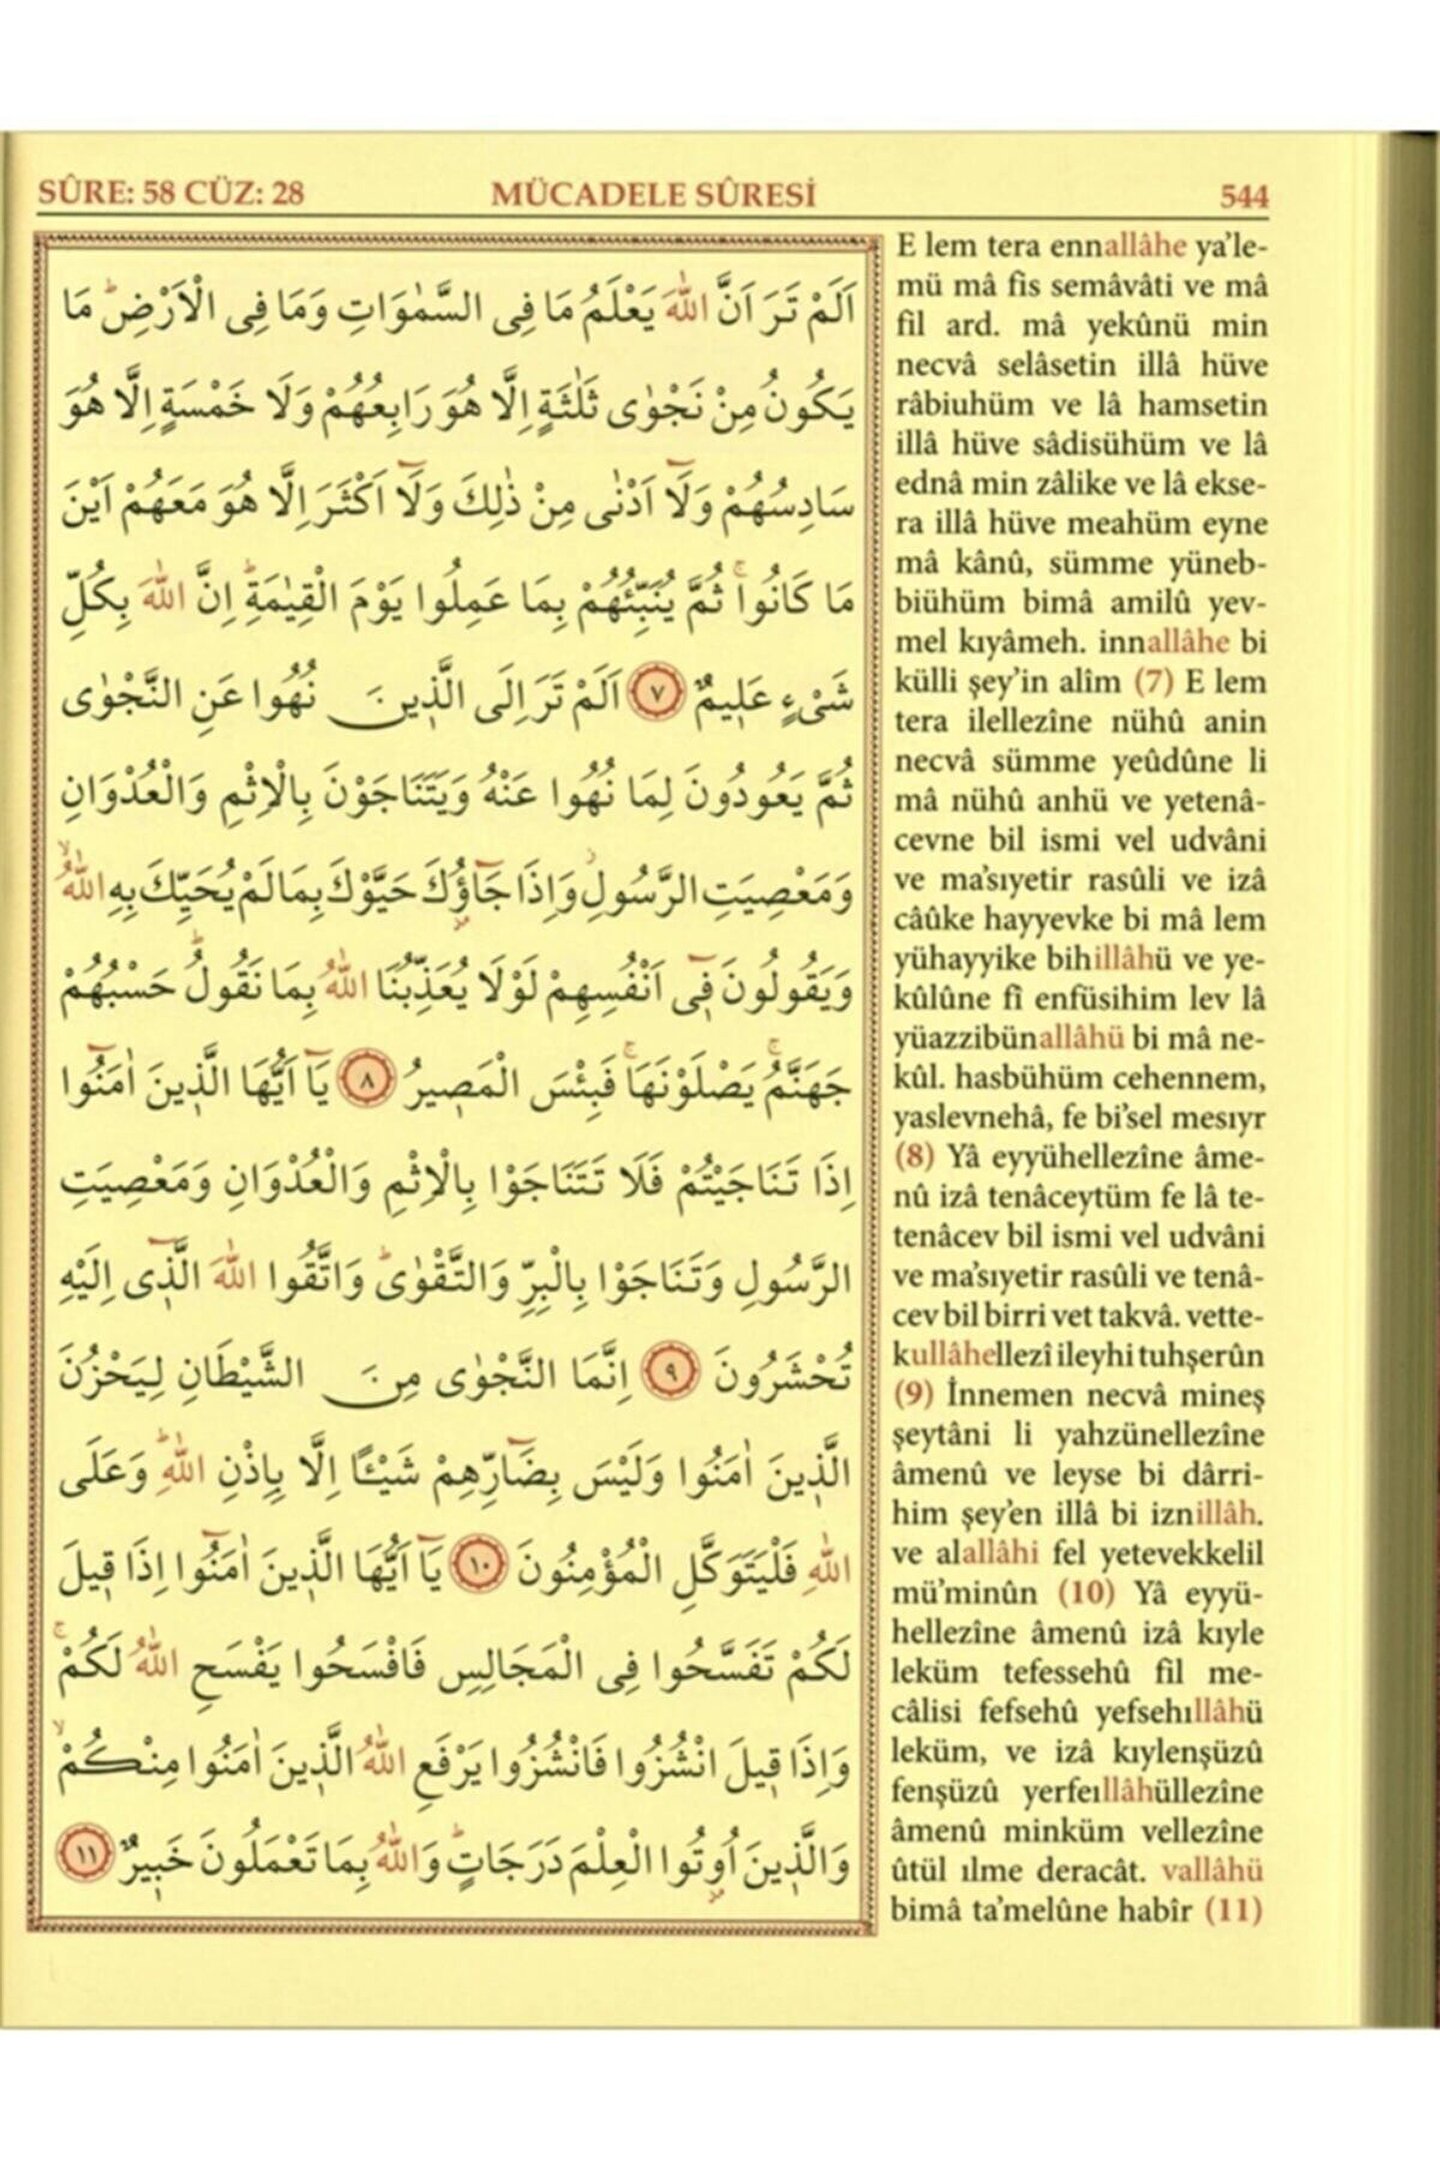 SÛRE: 58 CÜZ: 28
MÜCADELE SÛRESİ
544
اَلَمْ تَرَ اَنَّ اللّٰهَ يَعْلَمُ مَا فِى السَّمٰوَاتِ وَمَا فِى الْاَرْضِۜ مَا
يَكُونُ مِنْ نَجْوٰى ثَلٰثَةٍ اِلَّا هُوَ رَابِعُهُمْ وَلَا خَمْسَةٍ اِلَّا هُوَ
سَادِسُهُمْ وَلَٓا اَدْنٰى مِنْ ذٰلِكَ وَلَٓا اَكْثَرَ اِلَّا هُوَ مَعَهُمْ اَيْنَ
مَا كَانُواۚ ثُمَّ يُنَبِّئُهُمْ بِمَا عَمِلُوا يَوْمَ الْقِيٰمَةِۜ اِنَّ اللّٰهَ بِكُلِّ
شَىْءٍ عَلٖيمٌ ﴿٧﴾ اَلَمْ تَرَ اِلَى الَّذٖينَ نُهُوا عَنِ النَّجْوٰى
ثُمَّ يَعُودُونَ لِمَا نُهُوا عَنْهُ وَيَتَنَاجَوْنَ بِالْاِثْمِ وَالْعُدْوَانِ
وَمَعْصِيَتِ الرَّسُولِۘ وَاِذَا جَٓاؤُ۫كَ حَيَّوْكَ بِمَا لَمْ يُحَيِّكَ بِهِ اللّٰهُۙ
وَيَقُولُونَ فٖٓى اَنْفُسِهِمْ لَوْلَا يُعَذِّبُنَا اللّٰهُ بِمَا نَقُولُۜ حَسْبُهُمْ
جَهَنَّمُۚ يَصْلَوْنَهَاۚ فَبِئْسَ الْمَصٖيرُ ﴿٨﴾ يَٓا اَيُّهَا الَّذٖينَ اٰمَنُٓوا
اِذَا تَنَاجَيْتُمْ فَلَا تَتَنَاجَوْا بِالْاِثْمِ وَالْعُدْوَانِ وَمَعْصِيَتِ
الرَّسُولِ وَتَنَاجَوْا بِالْبِرِّ وَالتَّقْوٰىۜ وَاتَّقُوا اللّٰهَ الَّذٖٓى اِلَيْهِ
تُحْشَرُونَ ﴿٩﴾ اِنَّمَا النَّجْوٰى مِنَ الشَّيْطَانِ لِيَحْزُنَ
الَّذٖينَ اٰمَنُوا وَلَيْسَ بِضَٓارِّهِمْ شَيْـًٔا اِلَّا بِاِذْنِ اللّٰهِۜ وَعَلَى
اللّٰهِ فَلْيَتَوَكَّلِ الْمُؤْمِنُونَ ﴿١٠﴾ يَٓا اَيُّهَا الَّذٖينَ اٰمَنُٓوا اِذَا قٖيلَ
لَكُمْ تَفَسَّحُوا فِى الْمَجَالِسِ فَافْسَحُوا يَفْسَحِ اللّٰهُ لَكُمْۚ
وَاِذَا قٖيلَ انْشُزُوا فَانْشُزُوا يَرْفَعِ اللّٰهُ الَّذٖينَ اٰمَنُوا مِنْكُمْۙ
وَالَّذٖينَ اُو۫تُوا الْعِلْمَ دَرَجَاتٍۜ وَاللّٰهُ بِمَا تَعْمَلُونَ خَبٖيرٌ ﴿١١﴾
E lem tera ennallâhe ya’le-
mü mâ fis semâvâti ve mâ
fil ard. mâ yekûnü min
necvâ selâsetin illâ hüve
râbiuhüm ve lâ hamsetin
illâ hüve sâdisühüm ve lâ
ednâ min zâlike ve lâ ekse-
ra illâ hüve meahüm eyne
mâ kânû, sümme yüneb-
biühüm bimâ amilû yev-
mel kıyâmeh. innallâhe bi
külli şey’in alîm (7) E lem
tera ilellezîne nühû anin
necvâ sümme yeûdûne li
mâ nühû anhü ve yetenâ-
cevne bil ismi vel udvâni
ve ma’sıyetir rasûli ve izâ
câûke hayyevke bi mâ lem
yühayyike bihillâhü ve ye-
kûlûne fî enfüsihim lev lâ
yüazzibünallâhü bi mâ ne-
kûl. hasbühüm cehennem,
yaslevnehâ, fe bi’sel mesıyr
(8) Yâ eyyühellezîne âme-
nû izâ tenâceytüm fe lâ te-
tenâcev bil ismi vel udvâni
ve ma’sıyetir rasûli ve tenâ-
cev bil birri vet takvâ. vette-
kullâhellezî ileyhi tuhşerûn
(9) İnnemen necvâ mineş
şeytâni li yahzünellezîne
âmenû ve leyse bi dârri-
him şey’en illâ bi iznillâh.
ve alallâhi fel yetevekkelil
mü’minûn (10) Yâ eyyü-
hellezîne âmenû izâ kıyle
leküm tefessehû fil me-
câlisi fefsehû yefsehıllâhü
leküm, ve izâ kıylenşüzû
fenşüzû yerfeıllâhüllezîne
âmenû minküm vellezîne
ûtül ılme deracât. vallâhü
bimâ ta’melûne habîr (11)